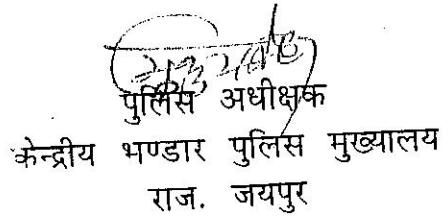 पुलिस अधीक्षक
केन्द्रीय भण्डार पुलिस मुख्यालय
राज. जयपुर